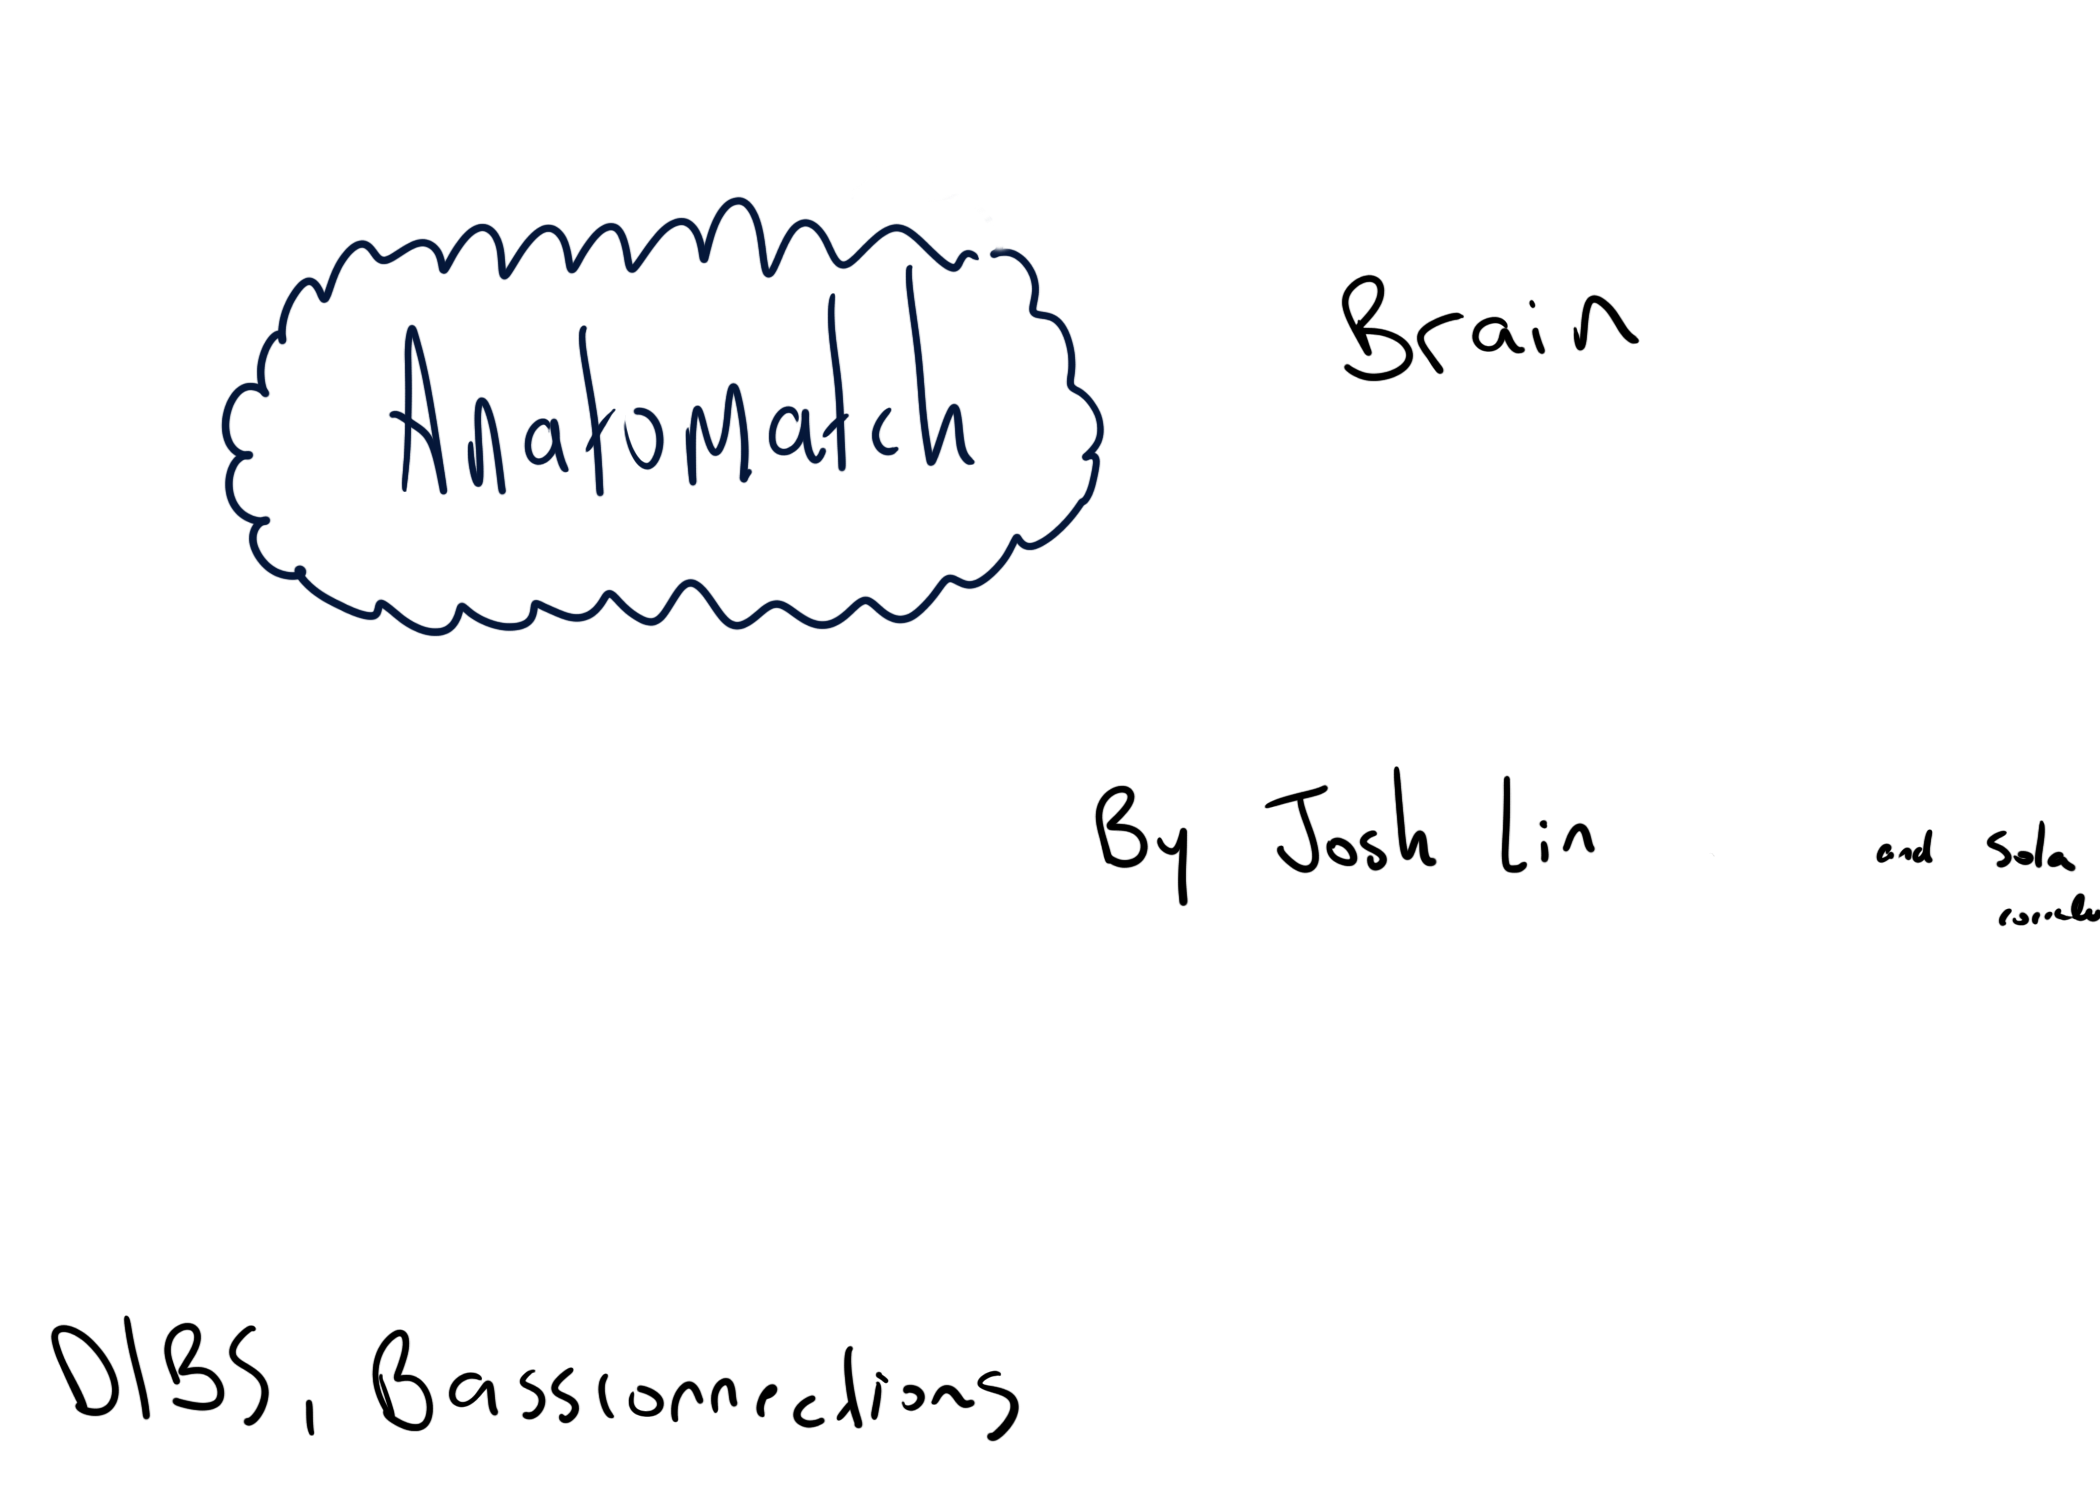 Anatomatch
Brain
By Josh Lin
and Sola
DIBS, Bassconnections